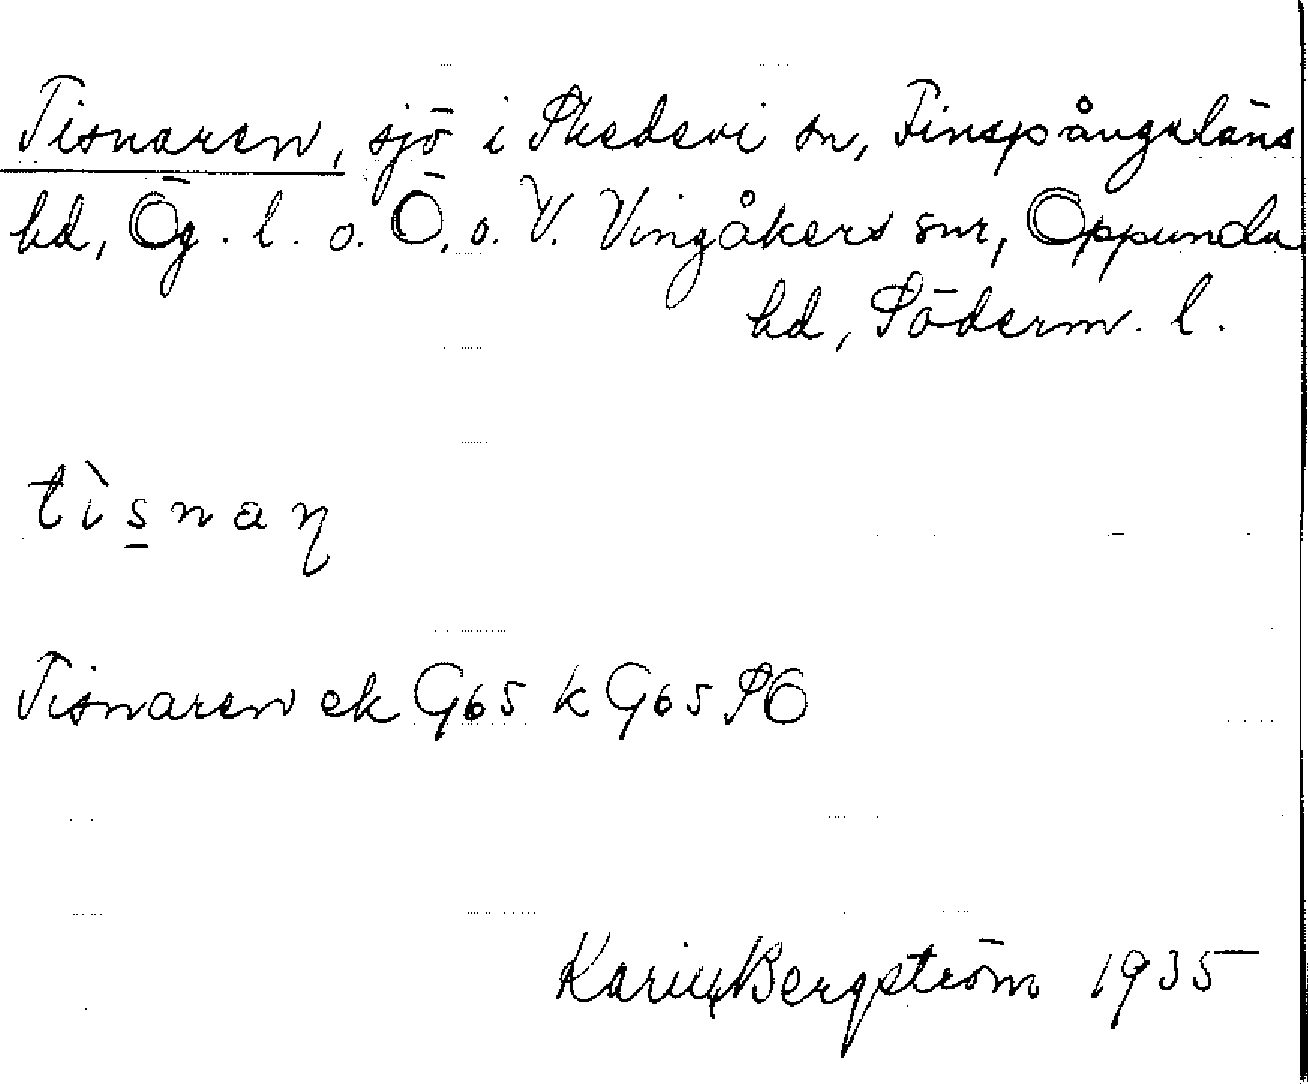 Tisnaren, sjö i Skedevi sn, Finspångaläns
hd, Ög. l. o. Ö. o. V. Vingåkers snr, Oppunda
hd, Söderm. l.
tìsnaɳ
Tisnaren ek G65 k G65 SÖ
Bergström 1935